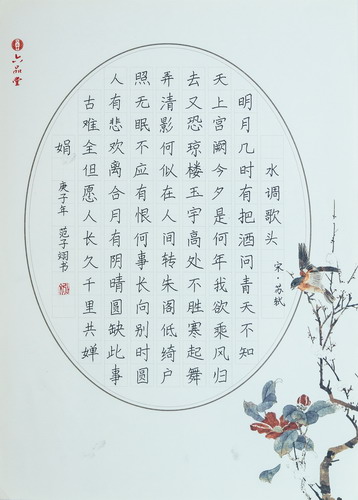 水调歌头
宋·苏轼
明月几时有把酒问青天不知
天上宫阙今夕是何年我欲乘风归
去又恐琼楼玉宇高处不胜寒起舞
弄清影何似在人间转朱阁低绮户
照无眠不应有恨何事长向别时圆
人有悲欢离合月有阴晴圆缺此事
古难全但愿人长久千里共婵
娟
庚子年 范子翊书
六品堂